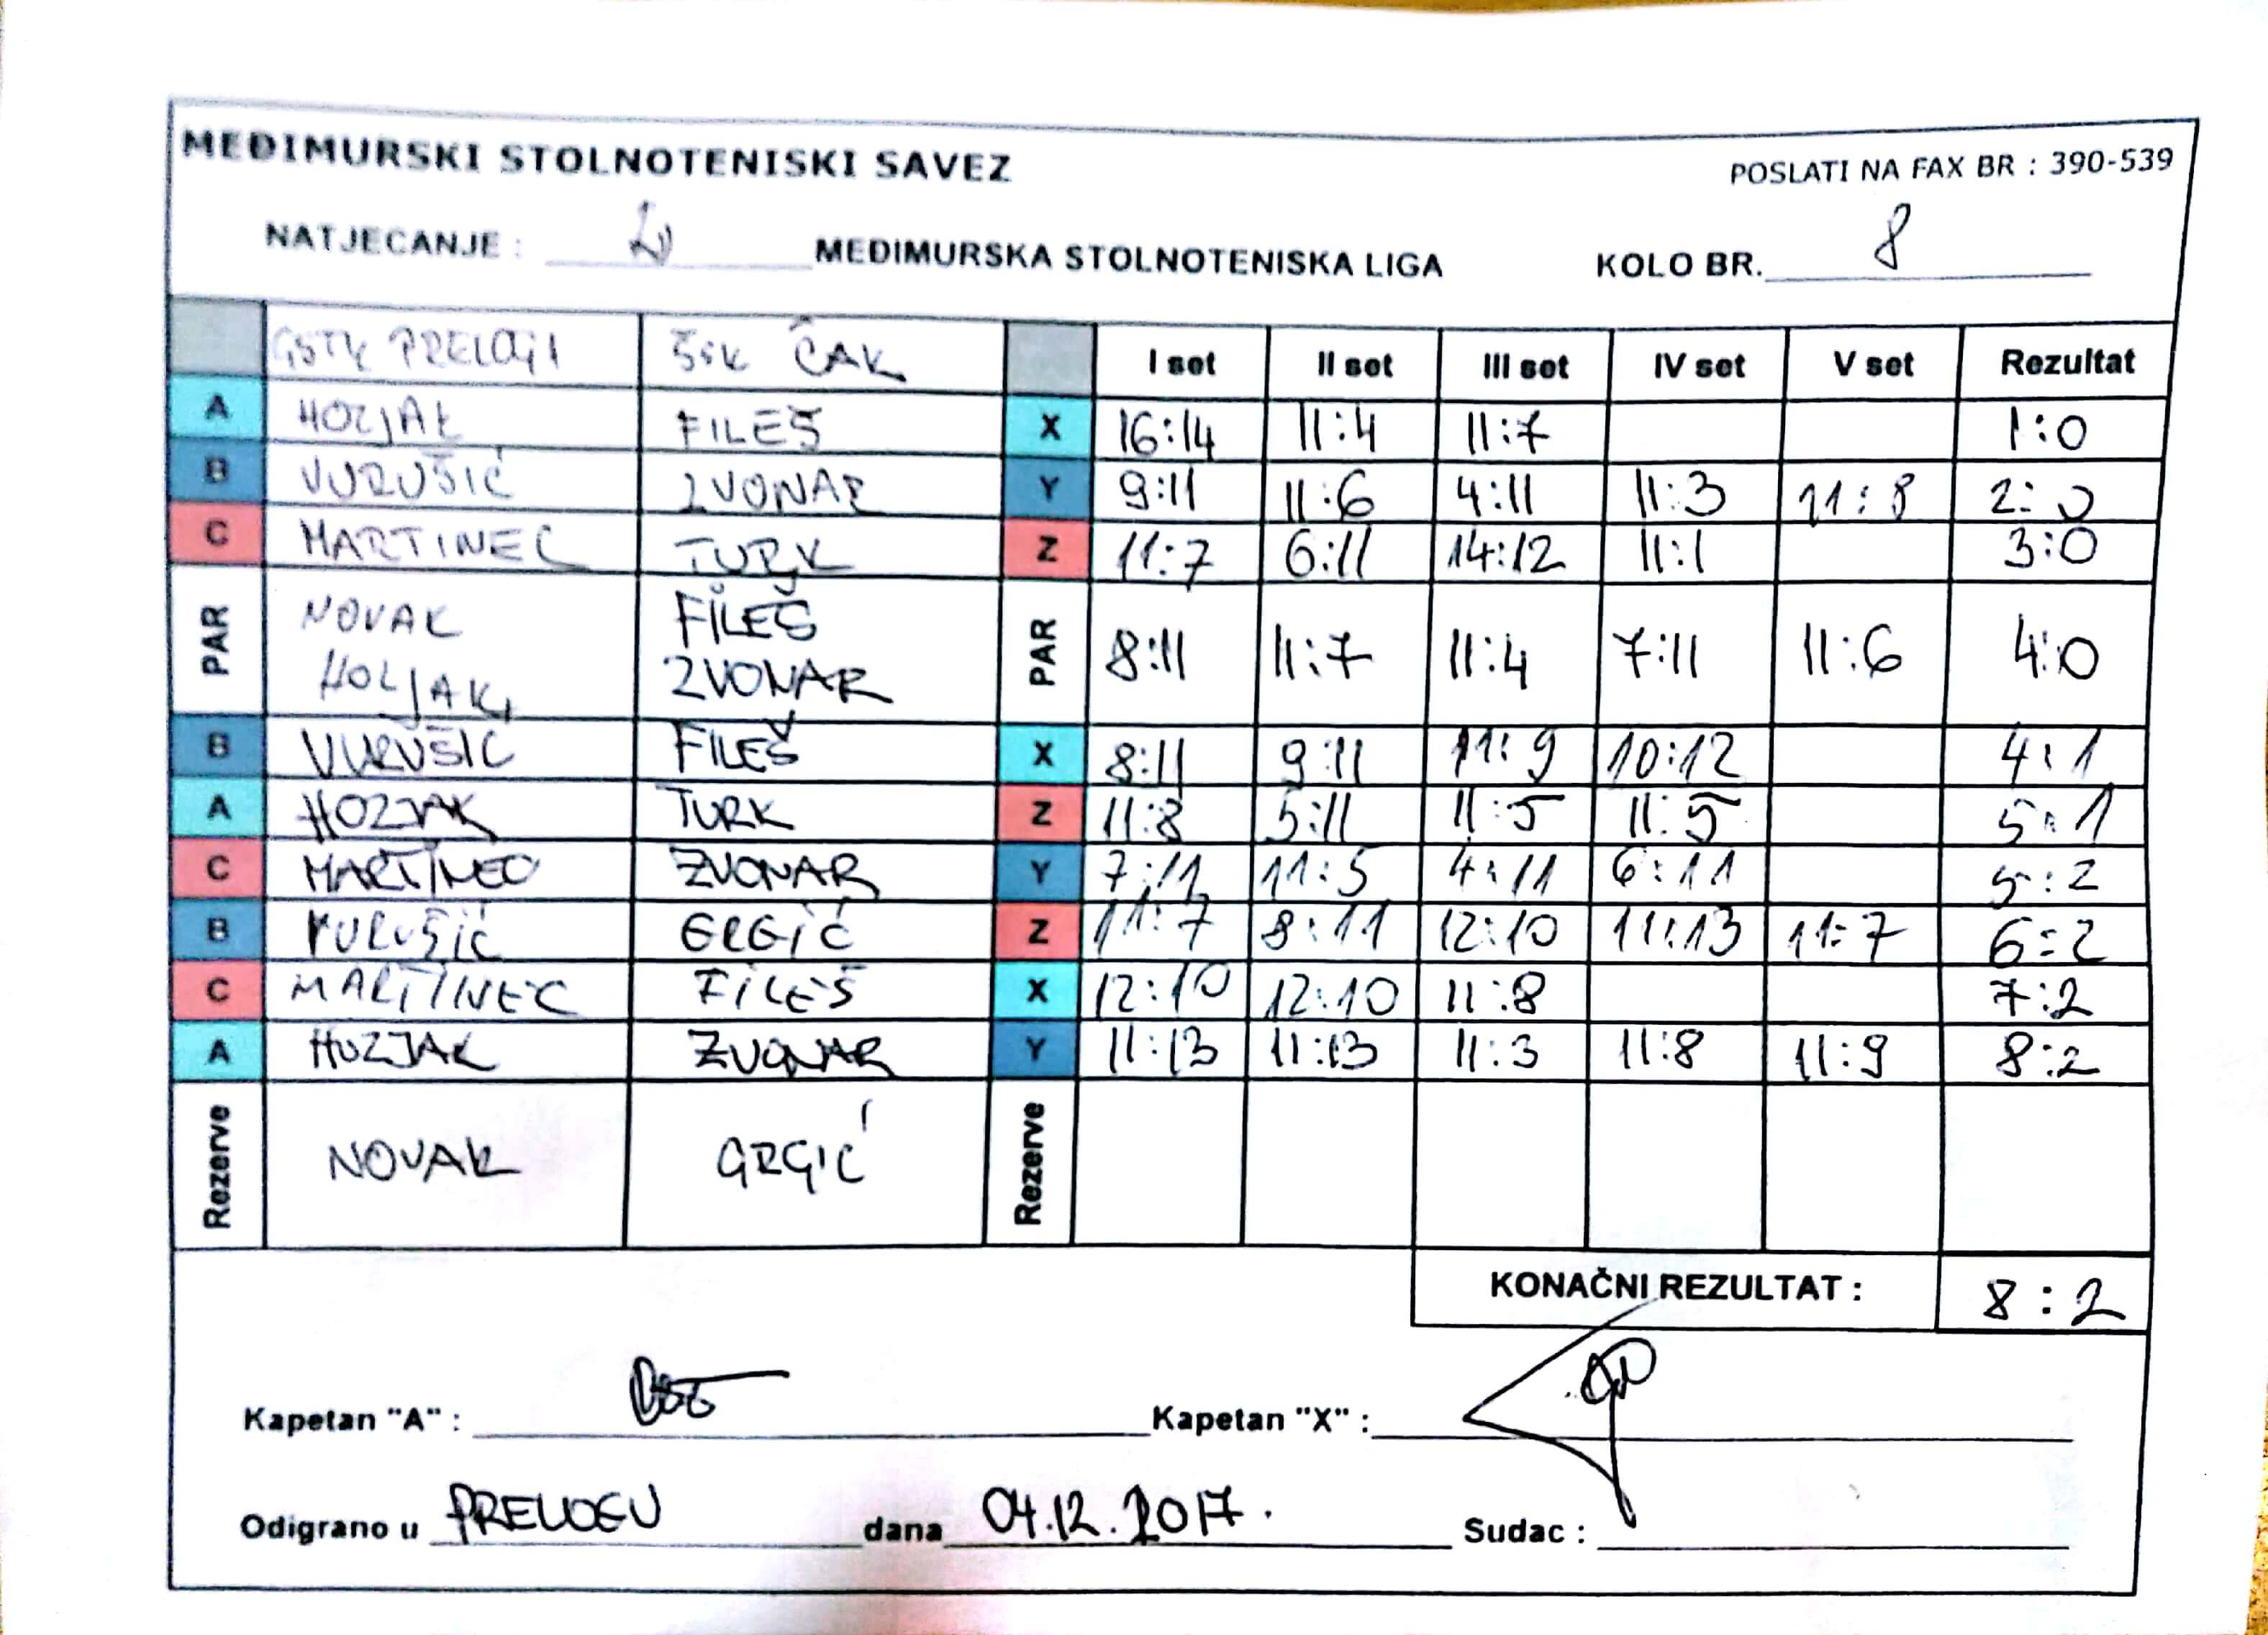 MEĐIMURSKI STOLNOTENISKI SAVEZ
POSLATI NA FAX BR : 390-539
NATJECANJE : MEĐIMURSKA STOLNOTENISKA LIGA KOLO BR. 8
PRELOG ČAK I set II set III set IV set V set Rezultat
A HOZJAK FILEŠ X 16:14 11:4 11:7 1:0
B VURUŠIĆ ZVONAR Y 9:11 11:6 4:11 11:3 11:8 2:0
C MARTINEC TURK Z 11:7 6:11 14:12 11:1 3:0
PAR NOVAK FILEŠ PAR 8:11 11:7 11:4 7:11 11:6 4:0
HOZJAK ZVONAR
B VURUŠIĆ FILEŠ X 8:11 9:11 11:9 10:12 4:1
A HOZJAK TURK Z 11:8 5:11 11:5 11:5 5:1
C MARTINEC ZVONAR Y 7:11 11:5 4:11 6:11 5:2
B VURUŠIĆ GRGIĆ Z 11:7 8:11 12:10 11:13 11:7 6:2
C MARTINEC FILEŠ X 12:10 12:10 11:8 7:2
A HOZJAK ZVONAR Y 11:13 11:13 11:3 11:8 11:9 8:2
Rezerve NOVAK GRGIĆ Rezerve
KONAČNI REZULTAT : 8:2
Kapetan "A" : Kapetan "X" :
Odigrano u PRELOGU dana 04.12.2017. Sudac :